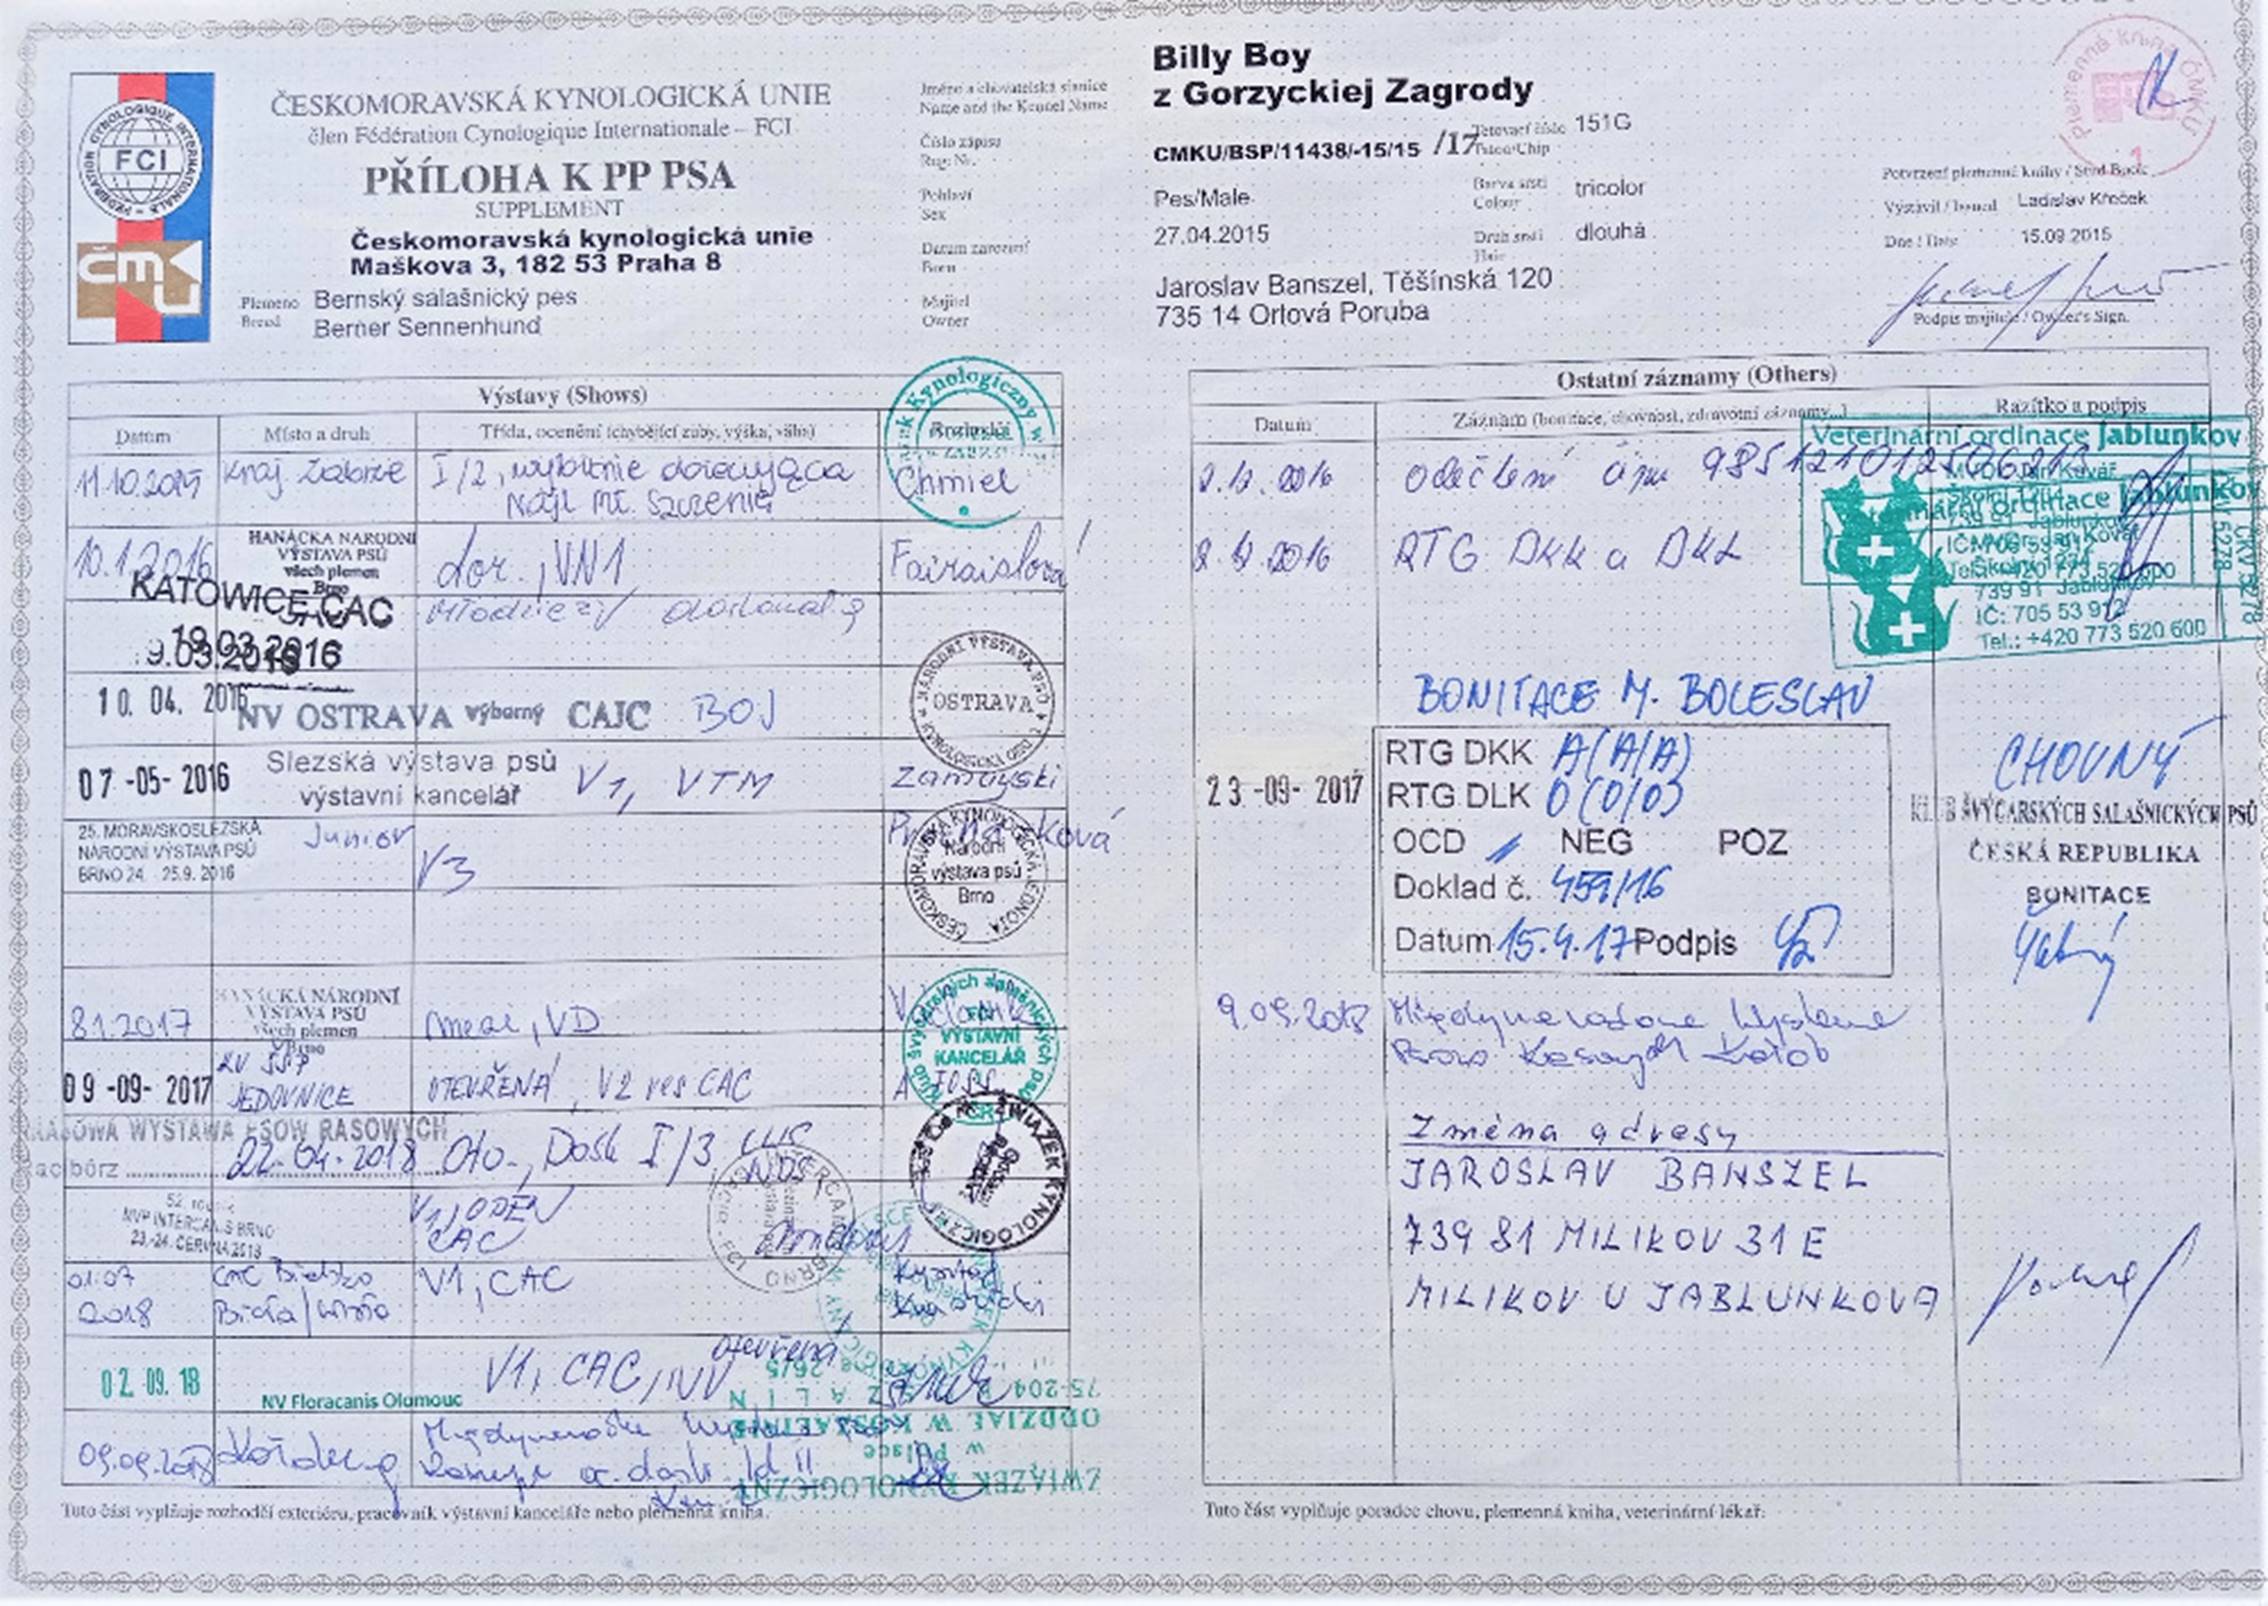 FCI
FÉDÉRATION CYNOLOGIQUE INTERNATIONALE
čmku
ČESKOMORAVSKÁ KYNOLOGICKÁ UNIE
člen Fédération Cynologique Internationale – FCI
PŘÍLOHA K PP PSA
SUPPLEMENT
Českomoravská kynologická unie
Maškova 3, 182 53 Praha 8
Plemeno
Breed
Bernský salašnický pes
Berner Sennenhund
Jméno a chovatelská stanice
Name and the Kennel Name
Billy Boy
z Gorzyckiej Zagrody
Číslo zápisu
Reg. Nr.
CMKU/BSP/11438/-15/15 /17
Tetovací číslo
Tatoo/Chip
151G
Pohlaví
Sex
Pes/Male
Barva srsti
Colour
tricolor
Datum narození
Born
27.04.2015
Druh srsti
Hair
dlouhá
Majitel
Owner
Jaroslav Banszel, Těšínská 120
735 14 Orlová Poruba
Plemenná kniha ČMKU
1
Potvrzení plemenné knihy / Stud Book
Vystavil / Issued Ladislav Křeček
Dne / Date 15.09.2015
Podpis majitele / Owner's Sign.
Výstavy (Shows)
Datum Místo a druh Třída, ocenění (chybějící zuby, výška, váha) Rozhodčí
11.10.2015 Kraj. Zabrze I/2, wybitnie obiecująca Chmiel
Najl. Mł. Szczenię
10.1.2016 HANÁCKÁ NÁRODNÍ
VÝSTAVA PSŮ
všech plemen
Brno
dor., VN1
KATOWICE CAC
19.03.2016
Młodzieży doskonała
10. 04. 2016 NV OSTRAVA výborný CAJC BOJ
NÁRODNÍ VÝSTAVA PSŮ
OSTRAVA
07 -05- 2016 Slezská výstava psů
výstavní kancelář
V1, VTM Zamoyski
25. MORAVSKOSLEZSKÁ
NÁRODNÍ VÝSTAVA PSŮ
BRNO 24. 25.9. 2016
Junior
V3
ČESKOMORAVSKÁ KYNOLOGICKÁ JEDNOTA
Národní
výstava psů
Brno
8.1.2017 HANÁCKÁ NÁRODNÍ
VÝSTAVA PSŮ
všech plemen
Brno
mezi, VD
VÝSTAVNÍ
KANCELÁŘ
09 -09- 2017 KV ŠSP
JEDOVNICE OTEVŘENÁ, V2 res CAC
KRAJOWA WYSTAWA PSÓW RASOWYCH
Racibórz 22.04.2018 Otw., Dosk I/3
ZWIĄZEK KYNOLOGICZNY
52. ročník
MVP INTERCANIS BRNO
23.-24. ČERVNA 2018
V1, CAC
01.07
2018
CAC Bielsko
Biała
V1, CAC
02. 09. 18 NV Floracanis Olomouc V1, CAC, NV otevřená
09.09.2018
75-204
ODDZIAŁ W KOSZALINIE
ZWIĄZEK KYNOLOGICZNY
w Polsce
Tuto část vyplňuje rozhodčí exteriéru, pracovník výstavní kanceláře nebo plemenná kniha.
Ostatní záznamy (Others)
Datum Záznam (bonitace, chovnost, zdravotní záznamy...) Razítko a podpis
odečtení čipu
RTG DKK a DKL
Veterinární ordinace Jablunkov
739 91 Jablunkov
IČ: 705 53 912
Tel.: +420 773 520 600
BONITACE M. BOLESLAV
23 -09- 2017
RTG DKK A (A/A)
RTG DLK 0 (0/0)
OCD NEG POZ
Doklad č. 459/16
Datum 15.4.17 Podpis
CHOVNÝ
KLUB ŠVÝCARSKÝCH SALAŠNICKÝCH PSŮ
ČESKÁ REPUBLIKA
BONITACE
9.09.2018
Změna adresy
JAROSLAV BANSZEL
739 81 MILIKOV 31 E
MILIKOV U JABLUNKOVA
Tuto část vyplňuje poradce chovu, plemenná kniha, veterinární lékař.